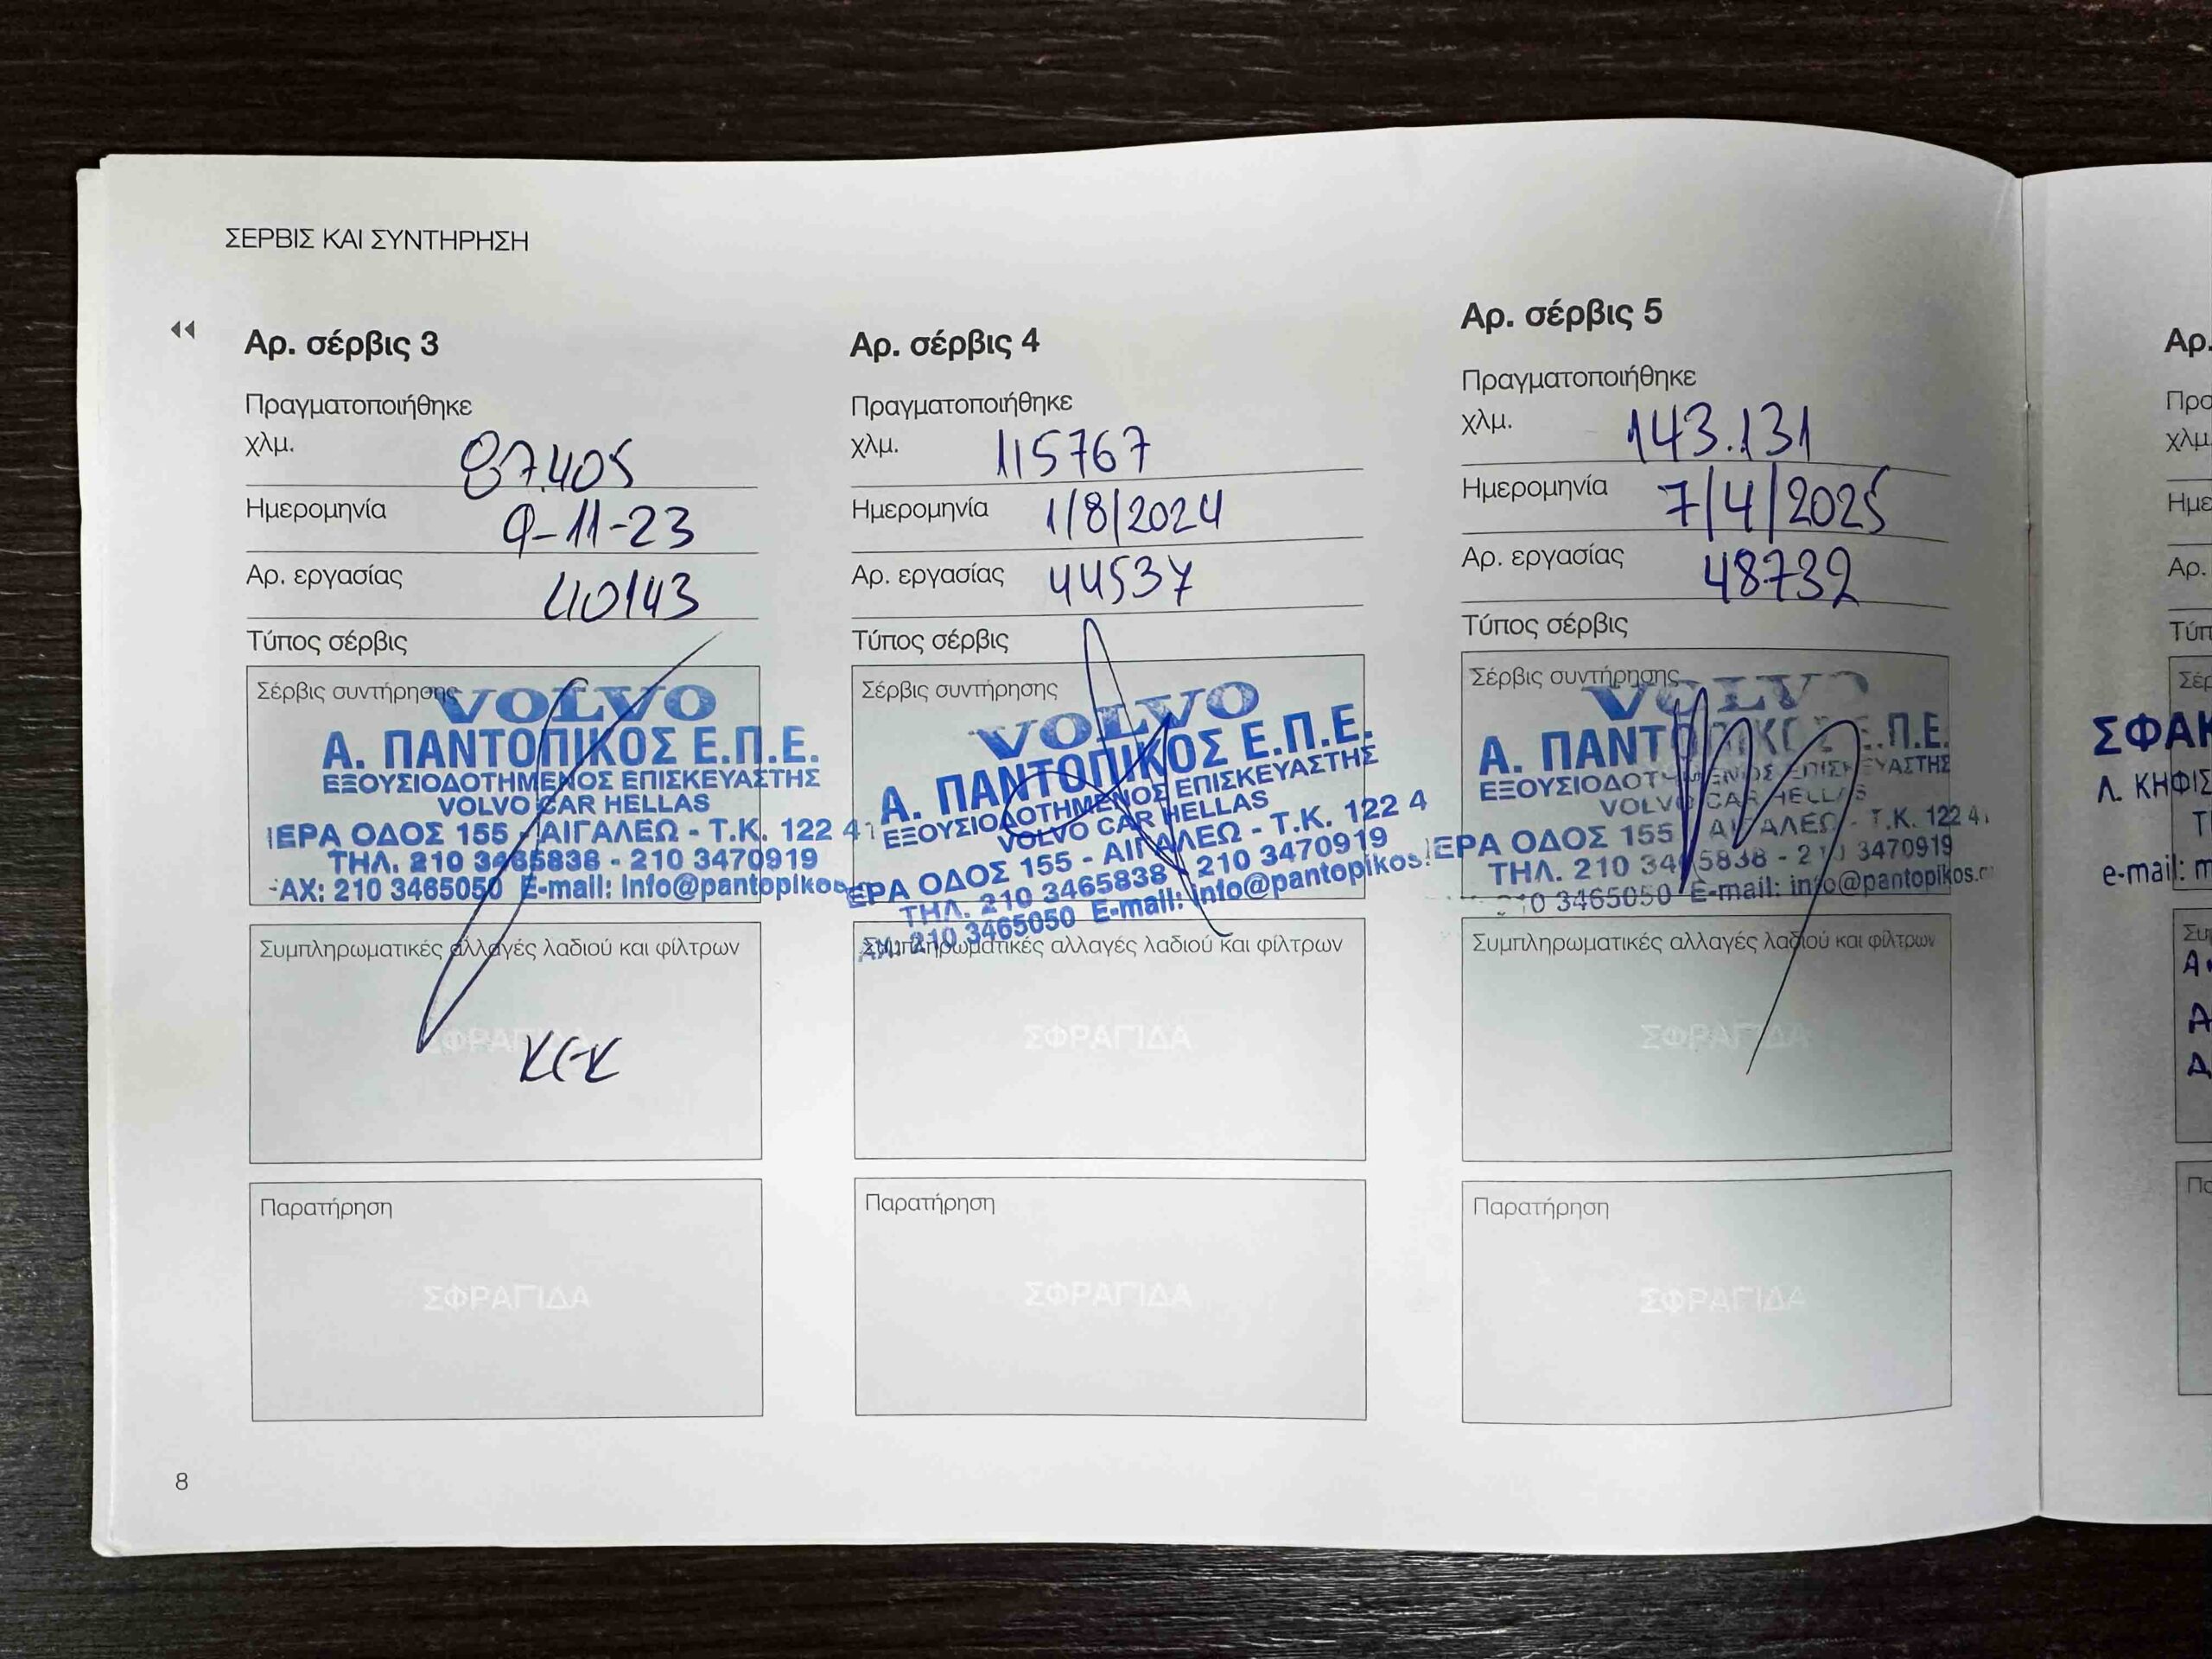 ΣΕΡΒΙΣ ΚΑΙ ΣΥΝΤΗΡΗΣΗ
Αρ. σέρβις 3
Πραγματοποιήθηκε
χλμ. 87.405
Ημερομηνία 9-11-23
Αρ. εργασίας 40143
Τύπος σέρβις
Σέρβις συντήρησης
VOLVO
Α. ΠΑΝΤΟΠΙΚΟΣ Ε.Π.Ε.
ΕΞΟΥΣΙΟΔΟΤΗΜΕΝΟΣ ΕΠΙΣΚΕΥΑΣΤΗΣ
VOLVO CAR HELLAS
ΙΕΡΑ ΟΔΟΣ 155 - ΑΙΓΑΛΕΩ - Τ.Κ. 122 41
ΤΗΛ. 210 3465838 - 210 3470919
ΑΧ: 210 3465050 E-mail: info@pantopikos
Συμπληρωματικές αλλαγές λαδιού και φίλτρων
ΣΦΡΑΓΙΔΑ
Παρατήρηση
ΣΦΡΑΓΙΔΑ
Αρ. σέρβις 4
Πραγματοποιήθηκε
χλμ. 115767
Ημερομηνία 1/8/2024
Αρ. εργασίας 44537
Τύπος σέρβις
Σέρβις συντήρησης
VOLVO
Α. ΠΑΝΤΟΠΙΚΟΣ Ε.Π.Ε.
ΕΞΟΥΣΙΟΔΟΤΗΜΕΝΟΣ ΕΠΙΣΚΕΥΑΣΤΗΣ
VOLVO CAR HELLAS
ΕΡΑ ΟΔΟΣ 155 - ΑΙΓΑΛΕΩ - Τ.Κ. 122 4
ΤΗΛ. 210 3465838 - 210 3470919
ΑΧ: 210 3465050 E-mail: info@pantopikos.
Συμπληρωματικές αλλαγές λαδιού και φίλτρων
ΣΦΡΑΓΙΔΑ
Παρατήρηση
ΣΦΡΑΓΙΔΑ
Αρ. σέρβις 5
Πραγματοποιήθηκε
χλμ. 143.131
Ημερομηνία 7/4/2025
Αρ. εργασίας 48732
Τύπος σέρβις
Σέρβις συντήρησης
VOLVO
Α. ΠΑΝΤΟΠΙΚΟΣ Ε.Π.Ε.
ΕΞΟΥΣΙΟΔΟΤΗΜΕΝΟΣ ΕΠΙΣΚΕΥΑΣΤΗΣ
VOLVO CAR HELLAS
ΙΕΡΑ ΟΔΟΣ 155 - ΑΙΓΑΛΕΩ - Τ.Κ. 122 41
ΤΗΛ. 210 3465838 - 210 3470919
210 3465050 E-mail: info@pantopikos.
Συμπληρωματικές αλλαγές λαδιού και φίλτρων
ΣΦΡΑΓΙΔΑ
Παρατήρηση
ΣΦΡΑΓΙΔΑ
8
Αρ.
χλμ
Αρ.
ΣΦΑΚ
Λ. ΚΗΦΙΣ
e-mail: m